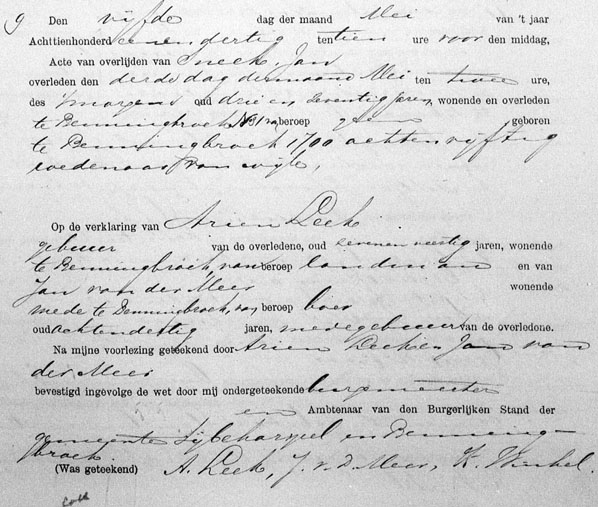 9 Den vijfde dag der maand Mei van 't jaar
Achttienhonderd eenendertig ten tien ure voor den middag,
Acte van overlijden van Sneek, Jan
overleden den derde dag der maand Mei ten twee ure,
des 'smorgens oud drie en zeventig jaren, wonende en overleden
te Benningbroek No 1 van beroep geen geboren
te Benningbroek 1700 achtenvijftig
weduwnaar van wijle,
Op de verklaring van Arien Leek
gebuur van de overledene, oud zevenenveertig jaren, wonende
te Benningbroek, van beroep landman en van
Jan van der Meer wonende
mede te Benningbroek, van beroep boer
oud achtendertig jaren, medegebuur van de overledene.
Na mijne voorlezing geteekend door Arien Leek en Jan van
der Meer
bevestigd ingevolge de wet door mij ondergeteekende burgmeester
en Ambtenaar van den Burgerlijken Stand der
gemeente Sijbekarspel en Benning-
broek.
(Was geteekend) A. Leek, J. v. d. Meer, K. Winkel.
Coll